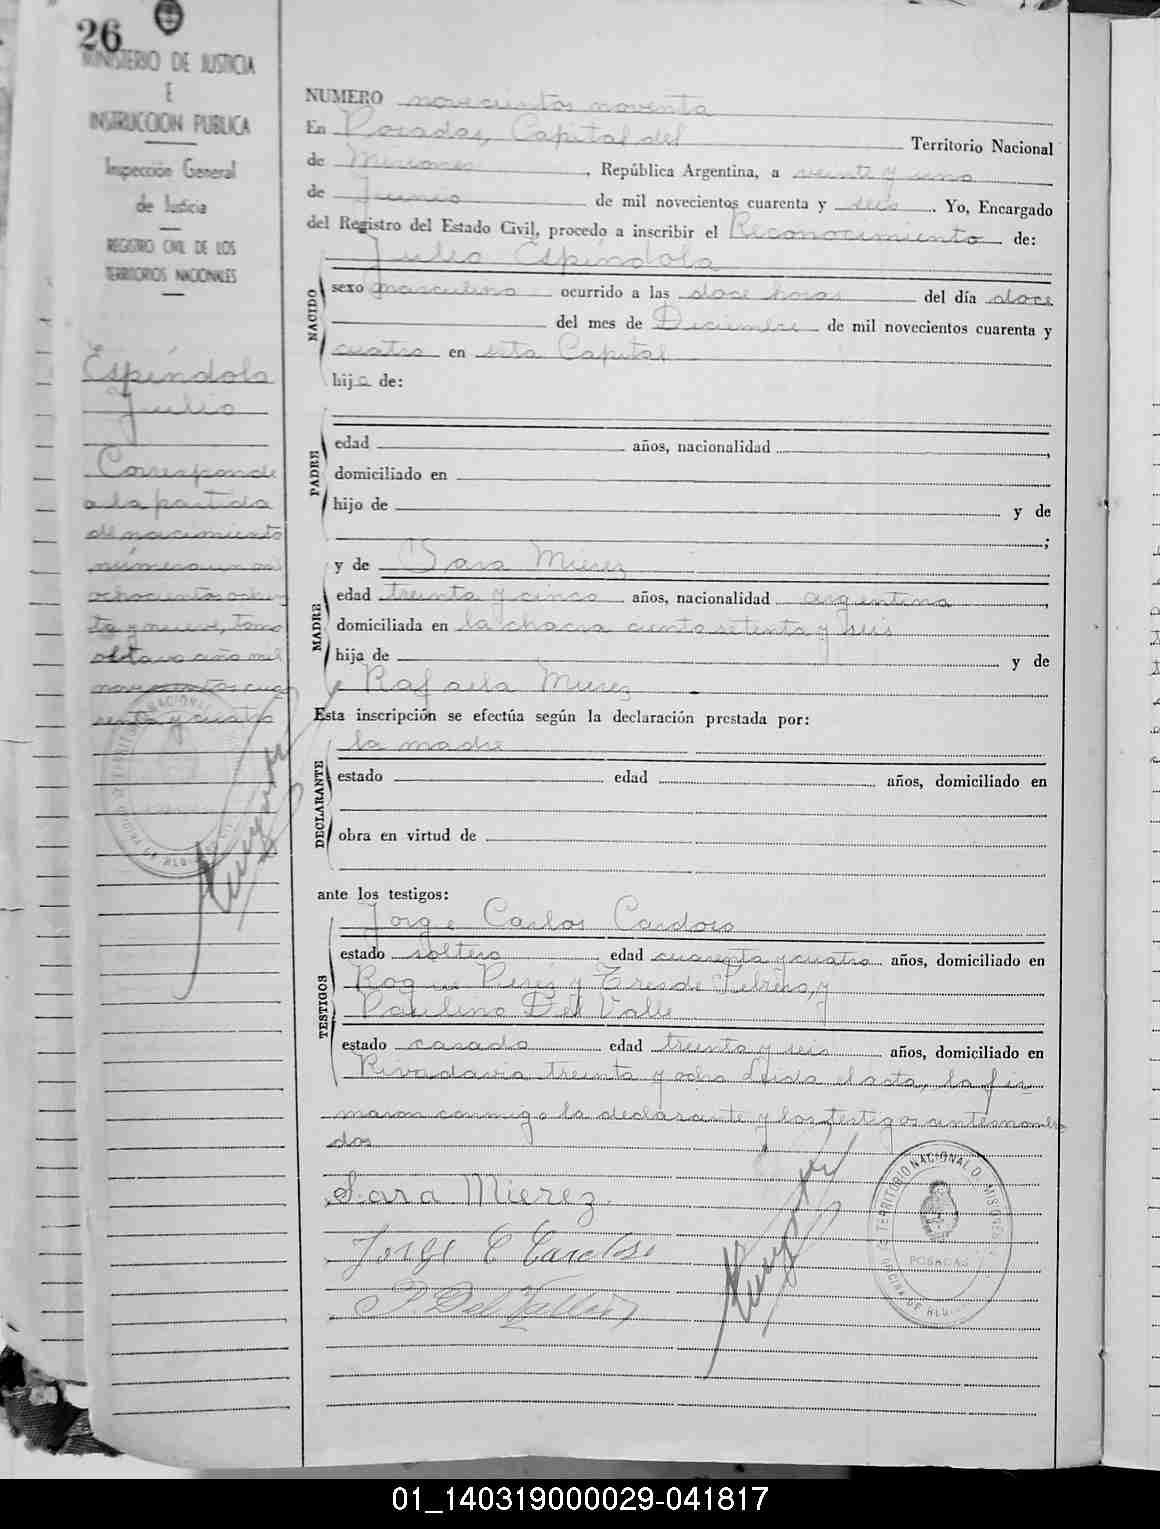 26
MINISTERIO DE JUSTICIA
E
INSTRUCCION PUBLICA
Inspección General
de Justicia
REGISTRO CIVIL DE LOS
TERRITORIOS NACIONALES
Espíndola
Julio
Corresponde
a la partida
de nacimiento
número un mil
ochocientos ochen
ta y nueve, tomo
octavo año mil
novecientos cua
renta y cuatro
NUMERO novecientos noventa
En Posadas, Capital del Territorio Nacional
de Misiones, República Argentina, a veinte y uno
de Junio de mil novecientos cuarenta y seis. Yo, Encargado
del Registro del Estado Civil, procedo a inscribir el Reconocimiento de:
Julio Espíndola
NACIDO
sexo masculino ocurrido a las doce horas del día doce
del mes de Diciembre de mil novecientos cuarenta y
cuatro en esta Capital
hijo de:
PADRE
edad años, nacionalidad ,
domiciliado en
hijo de y de
;
MADRE
y de Sara Mierez
edad treinta y cinco años, nacionalidad argentina,
domiciliada en la chacra ciento setenta y seis
hija de y de
Rafaela Mierez
Esta inscripción se efectúa según la declaración prestada por:
la madre
DECLARANTE
estado edad años, domiciliado en
obra en virtud de
ante los testigos:
TESTIGOS
Jorge Carlos Cardoso
estado soltero edad cuarenta y cuatro años, domiciliado en
Roque Perez y Tres de Febrero, y
Paulino Del Valle
estado casado edad treinta y seis años, domiciliado en
Rivadavia treinta y ocho Leida el acta, la fir-
maron conmigo la declarante y los testigos antesnombra
dos
Sara Mierez.
Jorge C Cardoso
P. Del Valle
TERRITORIO NACIONAL D. MISIONES
POSADAS
01_140319000029-041817